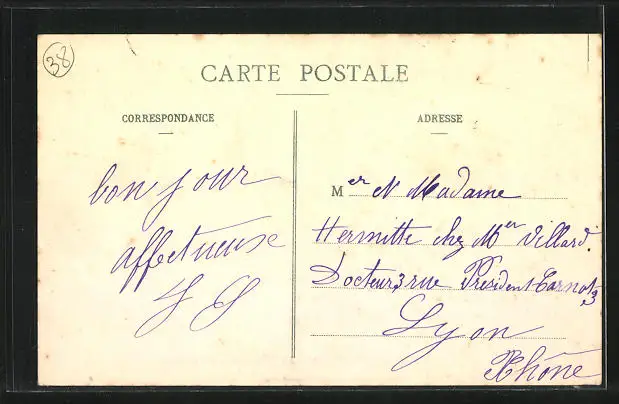 38
CARTE POSTALE
CORRESPONDANCE
bonjour
affectueuse
ADRESSE
Mer et Madame
Hermitte chez Mer Villard
Docteur 3 rue Président Carnot 3
Lyon
Rhône